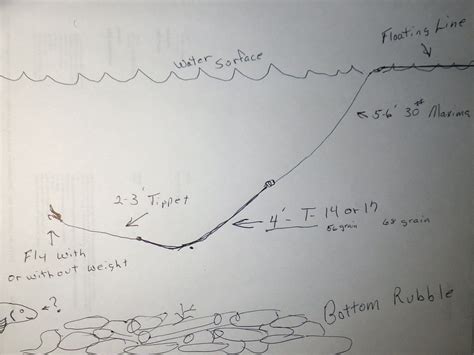 Floating Line
Water Surface
5-6' 30# Maxima
2-3' Tippet
4' - T-14 or 17
56 grain 68 grain
Fly with
or without weight
?
Bottom Rubble